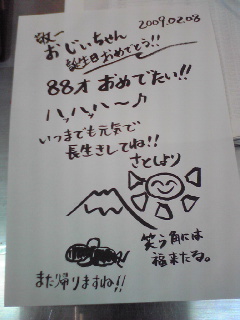 敬一
2009.02.08
おじいちゃん
誕生日おめでとう!!
88才おめでたい!!
ハッハッハ〜♪
いつまでも元気で
長生きしてね!!
さとしより
笑う角には
福来たる。
また帰りますね!!